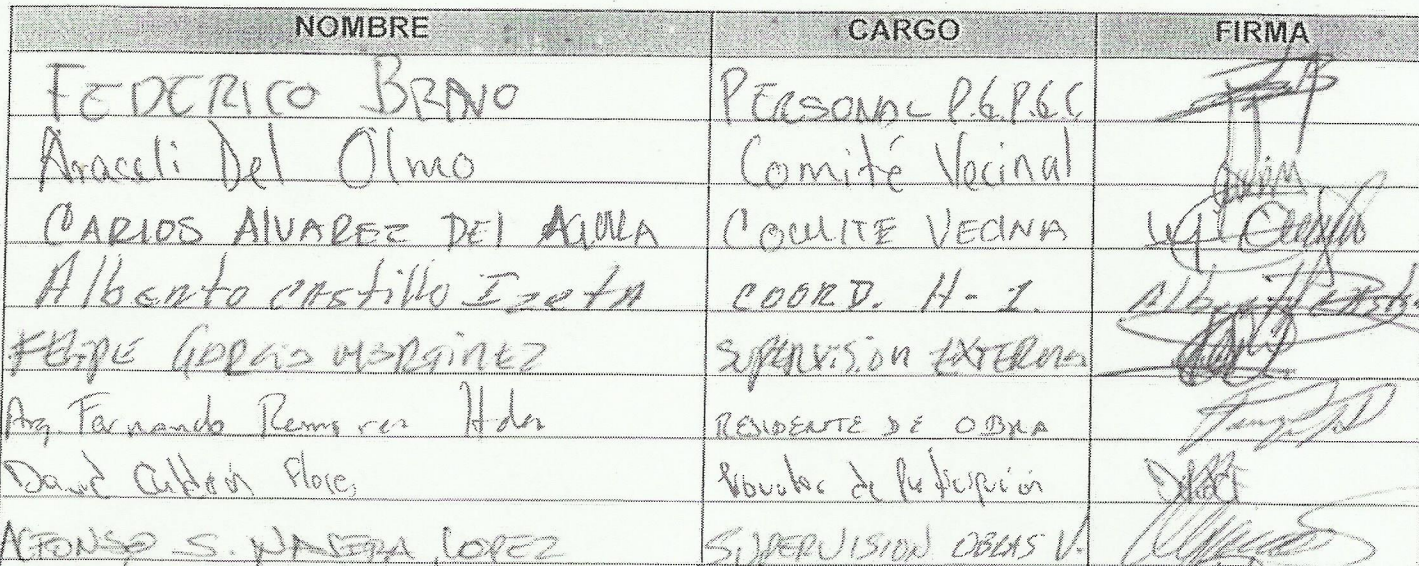 NOMBRE CARGO FIRMA
FEDERICO BRAVO PERSONAL P.G.P.G.C
Araceli Del Olmo Comité Vecinal
CARLOS ALVAREZ DEL COMITE VECINA
Alberto castillo Izeta COORD. H-1.
FELIPE GARCIA MARTINEZ SUPERVISION EXTERNA
Arq Fernando Ramirez Hdn RESIDENTE DE OBRA
David Calderón Flores de Participación
ALFONSO S. NAJERA LOPEZ SUPERVISION OBRAS V.